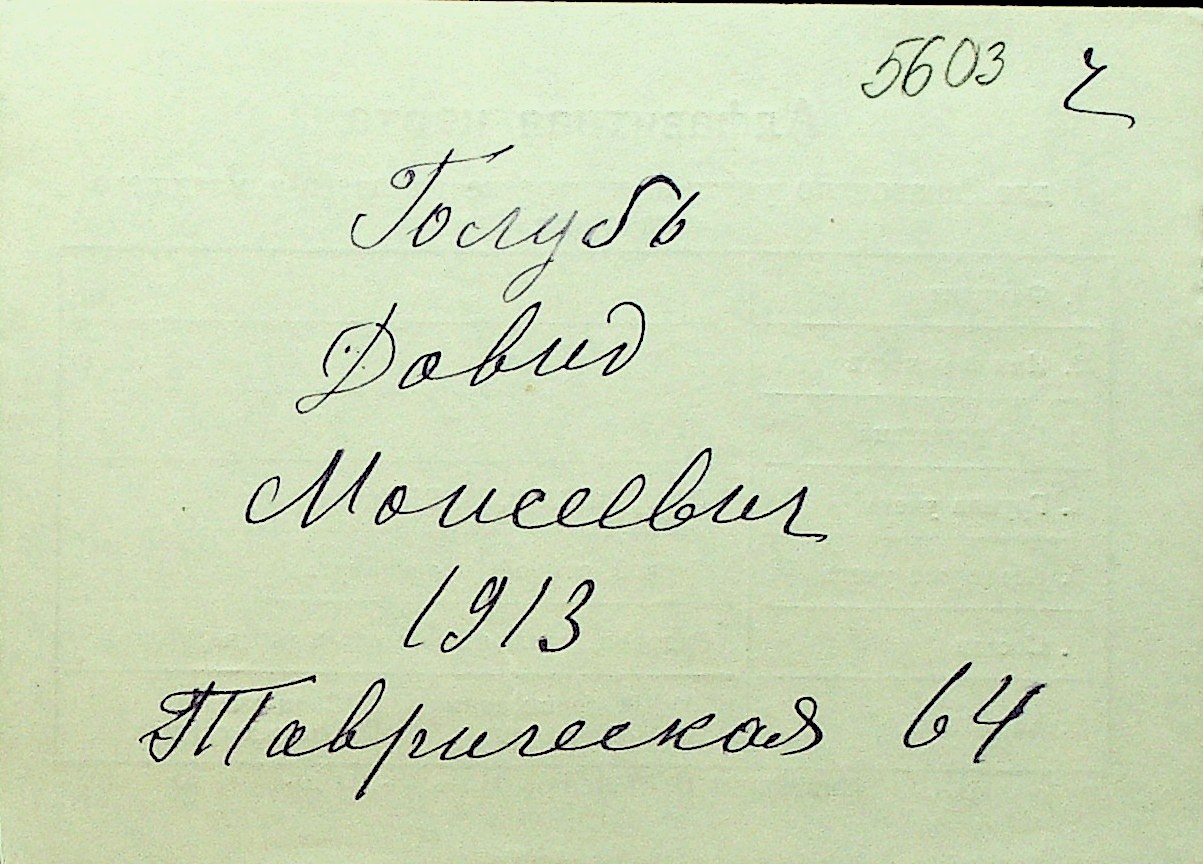 5603 ч
Голубь
Давид
Моисеевич
1913
Таврическая 64